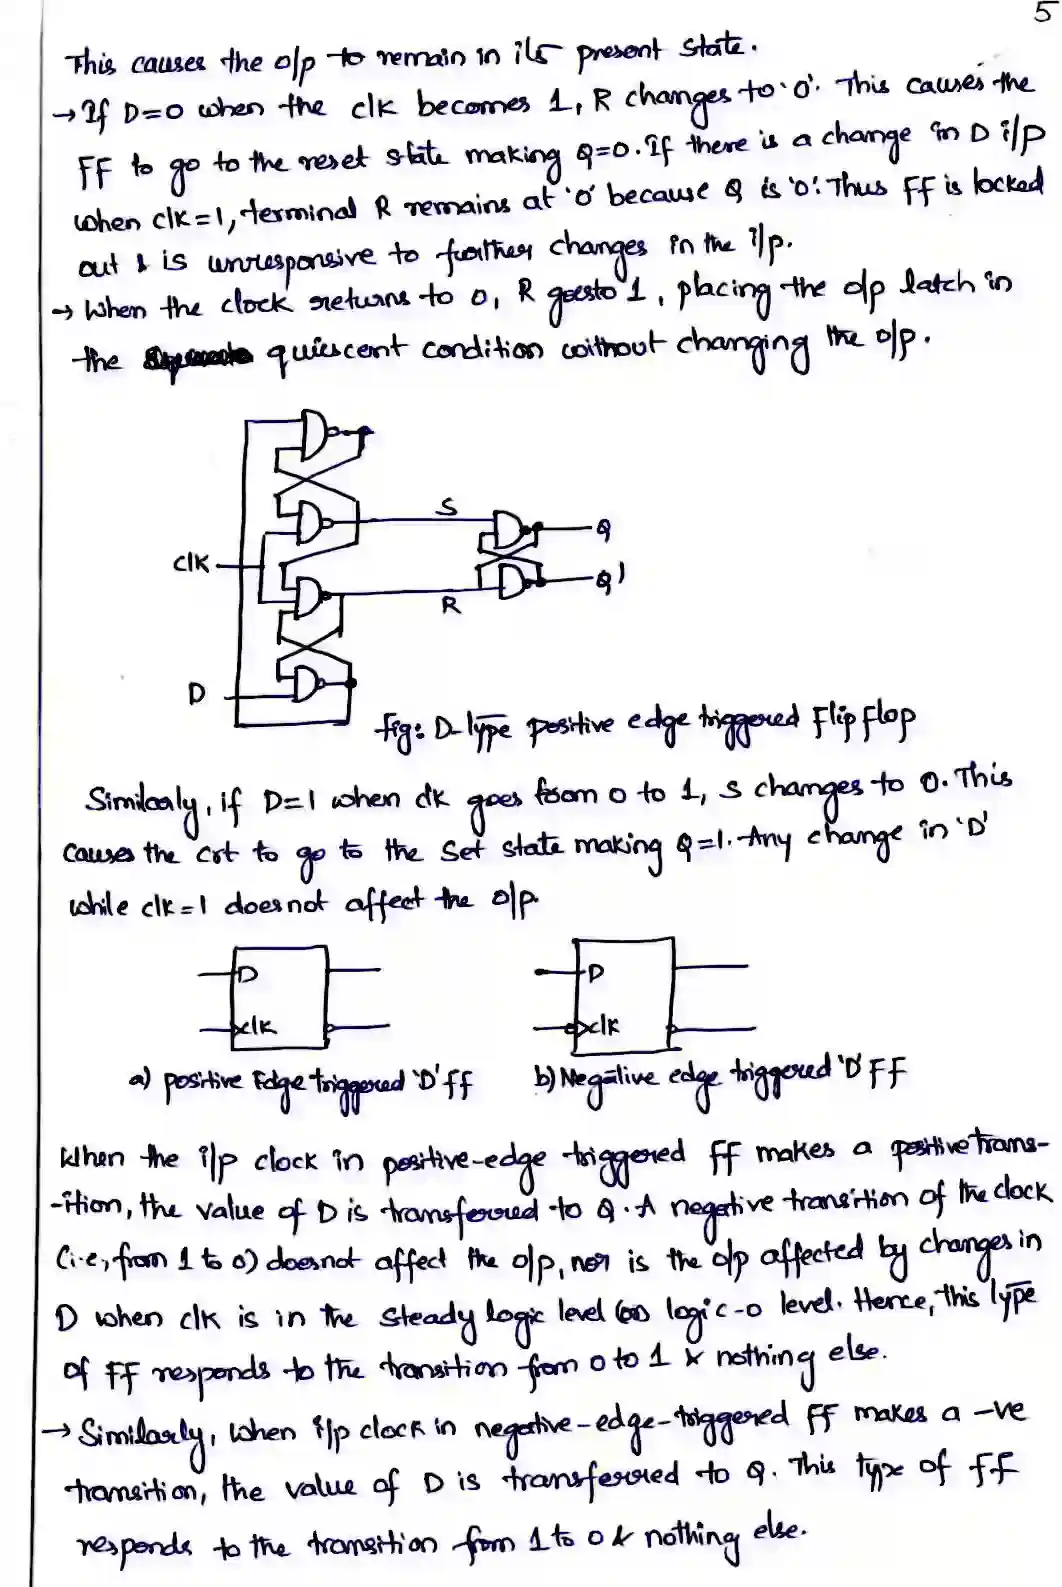 5
This causes the o/p to remain in its present state.
→ If D=0 when the clk becomes 1, R changes to '0'. This causes the
FF to go to the reset state making Q=0. If there is a change in D i/p
when clk=1, terminal R remains at '0' because Q is '0'. Thus FF is locked
out & is unresponsive to further changes in the i/p.
→ When the clock returns to 0, R goes to 1, placing the o/p latch in
the quiescent condition without changing the o/p.
S
Q
clk
Q'
R
D
fig: D-type positive edge triggered Flip flop
Similarly, if D=1 when clk goes from 0 to 1, S changes to 0. This
causes the crt to go to the Set state making Q=1. Any change in 'D'
while clk=1 does not affect the o/p.
D
D
clk
clk
a) positive Edge triggered 'D' ff
b) Negative edge triggered 'D' FF
When the i/p clock in positive-edge triggered ff makes a positive trans-
-ition, the value of D is transferred to Q. A negative transition of the clock
(i.e, from 1 to 0) doesnot affect the o/p, nor is the o/p affected by changes in
D when clk is in the steady logic level (or) logic-0 level. Hence, this type
of FF responds to the transition from 0 to 1 & nothing else.
→ Similarly, when i/p clock in negative-edge-triggered FF makes a -ve
transition, the value of D is transferred to Q. This type of ff
responds to the transition from 1 to 0 & nothing else.